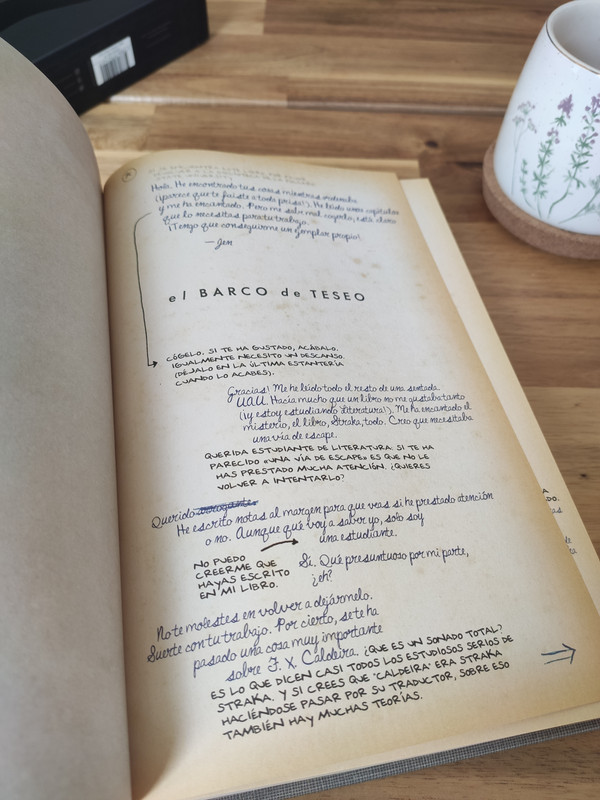 Hola. He encontrado tus cosas mientras ordenaba
(¡parece que te fuiste a toda prisa!). He leído unos capítulos
y me ha encantado. Pero me sabe mal cogerlo, está claro
que lo necesitas para tu trabajo.
¡Tengo que conseguirme un ejemplar propio!
—Jen
el BARCO de TESEO
CÓGELO. SI TE HA GUSTADO, ACÁBALO.
IGUALMENTE NECESITO UN DESCANSO.
(DÉJALO EN LA ÚLTIMA ESTANTERÍA
CUANDO LO ACABES).
Gracias! Me he leído todo el resto de una sentada.
UAU. Hacía mucho que un libro no me gustaba tanto
(¡y estoy estudiando literatura!). Me ha encantado el
misterio, el libro, Straka, todo. Creo que necesitaba
una vía de escape.
QUERIDA ESTUDIANTE DE LITERATURA: SI TE HA
PARECIDO «UNA VÍA DE ESCAPE» ES QUE NO LE
HAS PRESTADO MUCHA ATENCIÓN. ¿QUIERES
VOLVER A INTENTARLO?
Querido arrogante:
He escrito notas al margen para que veas si he prestado atención
o no. Aunque qué voy a saber yo, solo soy
una estudiante.
NO PUEDO
CREERME QUE
HAYAS ESCRITO
EN MI LIBRO.
Sí. Qué presuntuoso por mi parte,
¿eh?
No te molestes en volver a dejármelo.
Suerte con tu trabajo. Por cierto, se te ha
pasado una cosa muy importante
sobre F. X. Caldeira.
¿QUE ES UN SONADO TOTAL?
ES LO QUE DICEN CASI TODOS LOS ESTUDIOSOS SERIOS DE
STRAKA. Y SI CREES QUE "CALDEIRA" ERA STRAKA
HACIÉNDOSE PASAR POR SU TRADUCTOR, SOBRE ESO
TAMBIÉN HAY MUCHAS TEORÍAS.